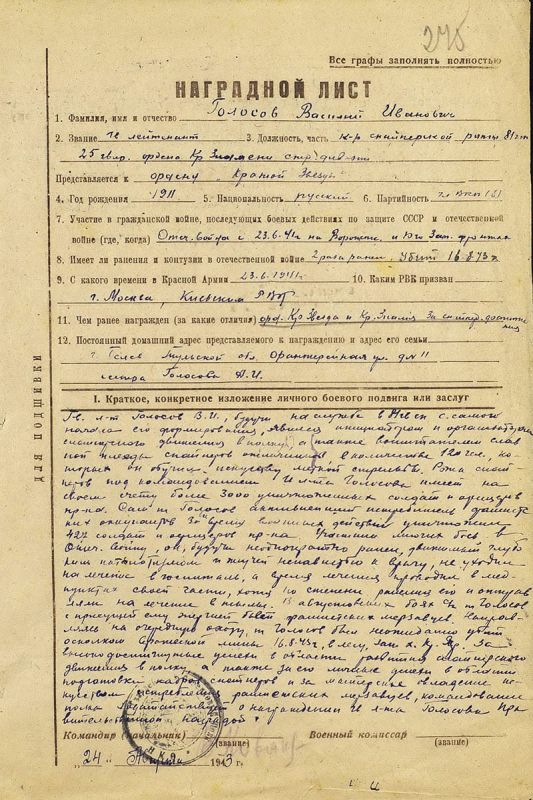 275
Все графы заполнять полностью
НАГРАДНОЙ ЛИСТ
1. Фамилия, имя и отчество Голосов Василий Иванович
2. Звание Гв. лейтенант 3. Должность, часть к-р снайперской роты 81 гв.
25 гвар. ордена Кр. Знамени стр. дивизии
Представляется к ордену "Красной Звезды"
4. Год рождения 1911 5. Национальность русский 6. Партийность чл. ВКП(б)
7. Участие в гражданской войне, последующих боевых действиях по защите СССР и отечественной
войне (где, когда) Отеч. война с 23.6.41г. на Воронеж. и Юго Зап. фронтах
8. Имеет ли ранения и контузии в отечественной войне 2 раза ранен. Убит 16.8.43г.
9. С какого времени в Красной Армии 23.6.1941г. 10. Каким РВК призван
г. Москва, Киевским РВК
11. Чем ранее награжден (за какие отличия) орд. Кр. Звезда и Кр. Знамя за снайпер. движение
12. Постоянный домашний адрес представляемого к награждению и адрес его семьи
Тульской обл. Оранжерейная ул. дм 11
сестра Голосова А.И.
ДЛЯ ПОДШИВКИ
I. Краткое, конкретное изложение личного боевого подвига или заслуг
Гв. л-т Голосов В.И., будучи на службе в 81 гв. сп с самого
начала его формирования, явился инициатором и организатором
снайперского движения в полку, а также воспитателем слав
ной плеяды снайперов отличников в количестве 120 чел., ко-
торых он обучил искусству меткой стрельбы. Рота снай
перов под командованием гв. л-та Голосова имеет на
своем счету более 3000 уничтоженных солдат и офицеров
пр-ка. Сам т. Голосов активнейший истребитель фашистс
ких оккупантов. За время военных действий уничтожил
427 солдат и офицеров пр-ка. Участник многих боев в
Отеч. войну, он, будучи неоднократно ранен, движимый глубо
ким патриотизмом и жгучей ненавистью к врагу, не уходил
на лечение в госпиталь, а время лечения проводил в мед-
пунктах своей части, хотя по степени ранений его и отправ
ляли на лечение в тылы. В августовских боях гв. т. Голосов
с присущей ему энергией бьет фашистских мерзавцев. Направ
ляясь на очередную охоту, т. Голосов был неожиданно убит
осколком вражеской мины 16.8.43г. в лесу, зап. х. Кр. Яр. За
высокодостигнутые успехи в области развития снайперского
движения в полку, а также за его личные успехи в области
подготовки кадров снайперов и за мастерское овладение ис-
кусством истребления фашистских мерзавцев, командование
полка ходатайствует о награждении гв. л-та Голосова пра
вительственной наградой
Командир (начальник) Военный комиссар
(звание) (звание)
"24" Августа 1943 г.